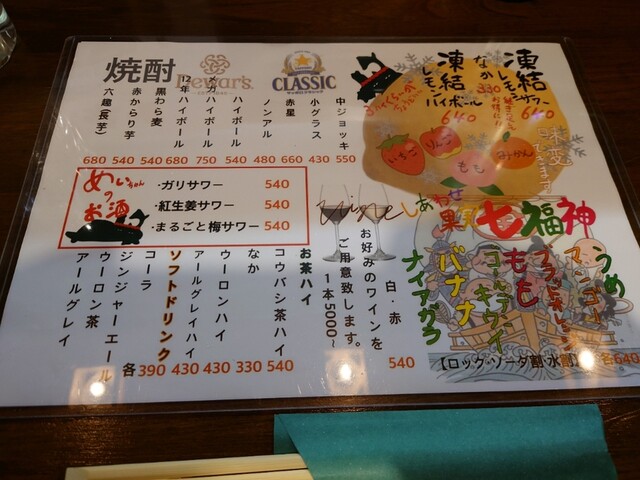 焼酎
Dewar's
CLASSIC
中ジョッキ 550
小グラス 430
赤星 660
ノンアル 480
ハイボール 540
メガハイボール 750
12年ハイボール 680
黒わら麦 540
赤からり芋 540
六趣(長芋) 680
凍結レモンサワー 640
なか 330
凍結レモンハイボール 640
味変できます
いちご
りんご
もも
みかん
めいちゃんのお酒
・ガリサワー 540
・紅生姜サワー 540
・まるごと梅サワー 540
wine
白・赤 540
お好みのワインを
ご用意致します。
1本5000~
お茶ハイ
コウバシ茶ハイ 540
なか 330
ウーロンハイ 430
アールグレイハイ 430
ソフトドリンク 各390
コーラ
ジンジャーエール
ウーロン茶
アールグレイ
しあわせ果実七福神
うめ
マンゴー
ブラッドオレンジ
もも
ゴールデンキウイ
バナナ
ナイアガラ
【ロック・ソーダ割・水割】各640